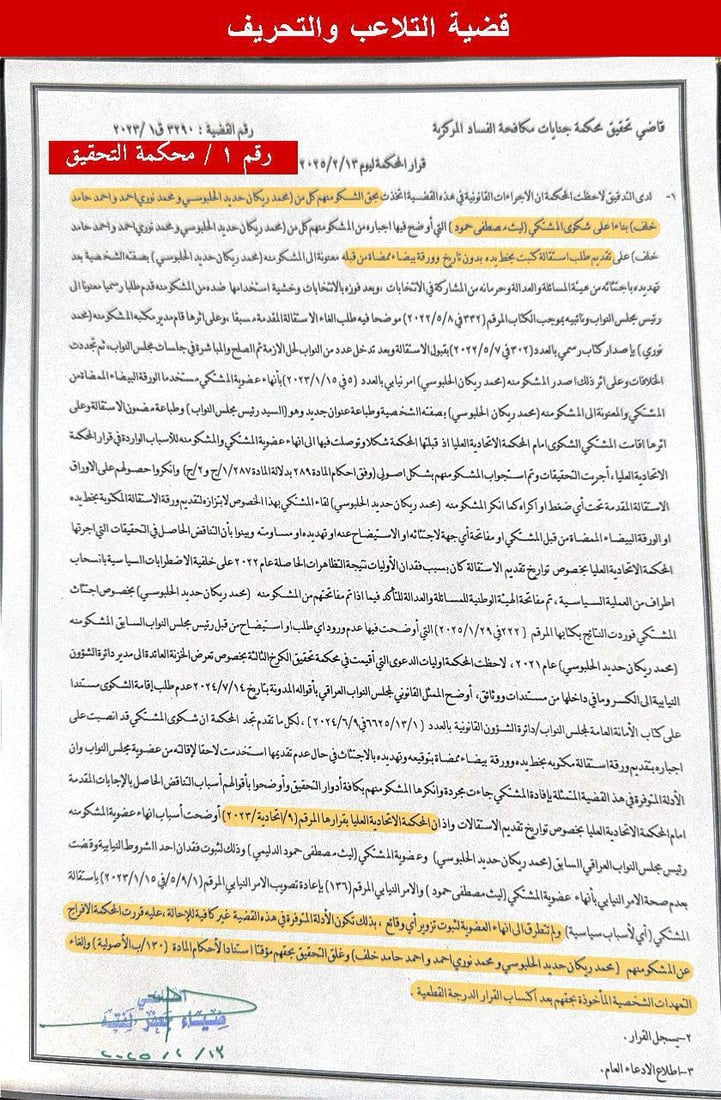 قضية التلاعب والتحريف
قاضي تحقيق محكمة جنايات مكافحة الفساد المركزية
رقم القضية : ٣٢٩٠ ق١ /٢٠٢٣
رقم ١ / محكمة التحقيق
قرار المحكمة ليوم ٢٠٢٥/٢/١٣
١- لدى التدقيق لاحظت المحكمة ان الاجراءات القانونية في هذه القضية اتخذت بحق الشكو منهم كل من (محمد ريكان حديد الحلبوسي و محمد نوري احمد و احمد حامد
خلف) بناءا على شكوى المشتكي (ليث مصطفى حمود) التي أوضح فيها اجباره من المشكو منهم كل من (محمد ريكان حديد الحلبوسي و محمد نوري احمد واحمد حامد
خلف) على تقديم طلب استقالة كتبت بخط يده بدون تاريخ وورقة بيضاء ممضاة من قبله معنونة الى المشكو منه (محمد ريكان حديد الحلبوسي) بصفته الشخصية بعد
تهديده باجتثاثه من هيئة المسائلة والعدالة وحرمانه من المشاركة في الانتخابات ، وبعد فوزه بالانتخابات وخشية استخدامها ضده من المشكو منه قدم طلبا رسميا معنونا الى
رئيس مجلس النواب ونائبيه بموجب الكتاب المرقم (٣٣٢ في ٢٠٢٢/٥/٨) موضحا فيه طلب الغاء الاستقالة المقدمة مسبقا ، وعلى اثرها قام مدير مكتبه المشكو منه (محمد
نوري) بإصدار كتاب رسمي بالعدد (٣٠٢ في ٢٠٢٢/٥/٧) بقبول الاستقالة وبعد تدخل عدد من النواب لحل الازمة تم الصلح والمباشرة في جلسات مجلس النواب، ثم تجددت
الخلافات وعلى اثر ذلك اصدر المشكو منه (محمد ريكان الحلبوسي) امر نيابي بالعدد (٥ في ٢٠٢٣/١/١٥) بأنهاء عضوية المشتكي مستخدما الورقة البيضاء الممضاة من
المشتكي والمعنونة الى المشكو منه (محمد ريكان الحلبوسي) بصفته الشخصية وطباعة عنوان جديد وهو (السيد رئيس مجلس النواب) وطباعة مضمون الاستقالة وعلى
اثرها اقامت المشتكي الشكوى امام المحكمة الاتحادية العليا اذ قبلتها المحكمة شكلا وتوصلت فيها الى انهاء عضوية المشتكي والمشكو منه للأسباب الواردة في قرار المحكمة
الاتحادية العليا ، أجريت التحقيقات وتم استجواب المشكو منهم بشكل اصولي (وفق احكام المادة ٢٨٩ بدلالة المادة ١/٢٨٧/ج و٢/ج) وانكروا حصولهم على الاوراق
الاستقالة المقدمة تحت أي ضغط او اكراه كما انكر المشكو منه (محمد ريكان حديد الحلبوسي) لقاء المشتكي بهذا الخصوص لابتزازه لتقديم ورقة الاستقالة المكتوبة بخط يده
او الورقة البيضاء الممضاة من قبل المشتكي او مفاتحة أي جهة لاجتثاثه او الاستيضاح عنه او تهديده او مساومته وبينوا بأن التناقض الحاصل في التحقيقات التي اجرتها
المحكمة الاتحادية العليا بخصوص تواريخ تقديم الاستقالة كان بسبب فقدان الأوليات نتيجة التظاهرات الحاصلة عام ٢٠٢٢ على خلفية الاضطرابات السياسية بانسحاب
اطراف من العملية السياسية ، تم مفاتحة الهيئة الوطنية للمسائلة والعدالة للتأكد فيما اذا تم مفاتحتهم من المشكو منه (محمد ريكان حديد الحلبوسي) بخصوص اجتثاث
المشتكي فوردت النتائج بكتابها المرقم (٢٢٢ في ٢٠٢٥/١/٢٩) التي أوضحت فيها عدم ورود اي طلب او استيضاح من قبل رئيس مجلس النواب السابق المشكو منه
(محمد ريكان حديد الحلبوسي) عام ٢٠٢١ ، لاحظت المحكمة اوليات الدعوى التي أقيمت في محكمة تحقيق الكرخ الثالثة بخصوص تعرض الخزنة العائدة الى مدير دائرة الشؤون
النيابية الى الكسر وما في داخلها من مستندات ووثائق، أوضح الممثل القانوني لمجلس النواب العراقي بأقواله المدونة بتاريخ ٢٠٢٤/٧/١٤ عدم طلب إقامة الشكوى مستندا
على كتاب الأمانة العامة لمجلس النواب/دائرة الشؤون القانونية بالعدد (٦٦٢٥/١٣/١ في ٢٠٢٤/٦/٩) ، لكل ما تقدم تجد المحكمة ان شكوى المشتكي قد انصبت على
اجباره بتقديم ورقة استقالة مكتوبه بخط يده وورقة بيضاء ممضاة بتوقيعه وتهديده بالاجتثاث في حال عدم تقديمها استخدمت لاحقا لإقالته من عضوية مجلس النواب وان
الأدلة المتوفرة في هذه القضية المتمثلة بإفادة المشتكي جاءت مجردة وانكرها المشكو منهم بكافة أدوار التحقيق وأوضحوا بأقوالهم أسباب التناقض الحاصل بالإجابات المقدمة
امام المحكمة الاتحادية العليا بخصوص تواريخ تقديم الاستقالات واذ ان المحكمة الاتحادية العليا بقرارها المرقم (٩/اتحادية/٢٠٢٣) أوضحت أسباب انهاء عضوية المشكو منه
رئيس مجلس النواب العراقي السابق (محمد ريكان حديد الحلبوسي) وعضوية المشتكي (ليث مصطفى حمود الدليمي) وذلك لثبوت فقدان احد الشروط النيابية وقضت
بعدم صحة الامر النيابي بأنهاء عضوية المشتكي (ليث مصطفى حمود) والامر النيابي المرقم (١٣٦) بإعادة تصويب الامر النيابي المرقم (٥/٩/١ في ٢٠٢٣/١/١٥) باستقالة
المشتكي (أي لأسباب سياسية) ولم تتطرق الى انهاء العضوية لثبوت تزوير أي وقائع ، بذلك تكون الأدلة المتوفرة في هذه القضية غير كافية للإحالة ،عليه قررت المحكمة الافراج
عن المشكو منهم (محمد ريكان حديد الحلبوسي و محمد نوري احمد و احمد حامد خلف) وغلق التحقيق بحقهم مؤقتا استنادا لأحكام المادة (١٣٠/ب الأصولية) والغاء
التعهدات الشخصية المأخوذة بحقهم بعد اكتساب القرار الدرجة القطعية .
٢-يسجل القرار .
٣-اطلاع الادعاء العام.
القاضي
ضياء جعفر لفتة
٢٠٢٥/٢/١٣